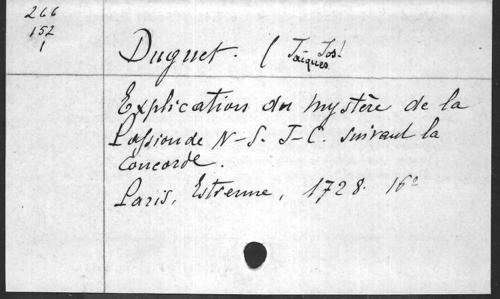 266
152
1
Duguet. ( J- Jos!
Jacques
Explication du mystère de la
Passion de N-S. J-C. suivant la
concorde.
Paris, Estienne, 1728. 16°